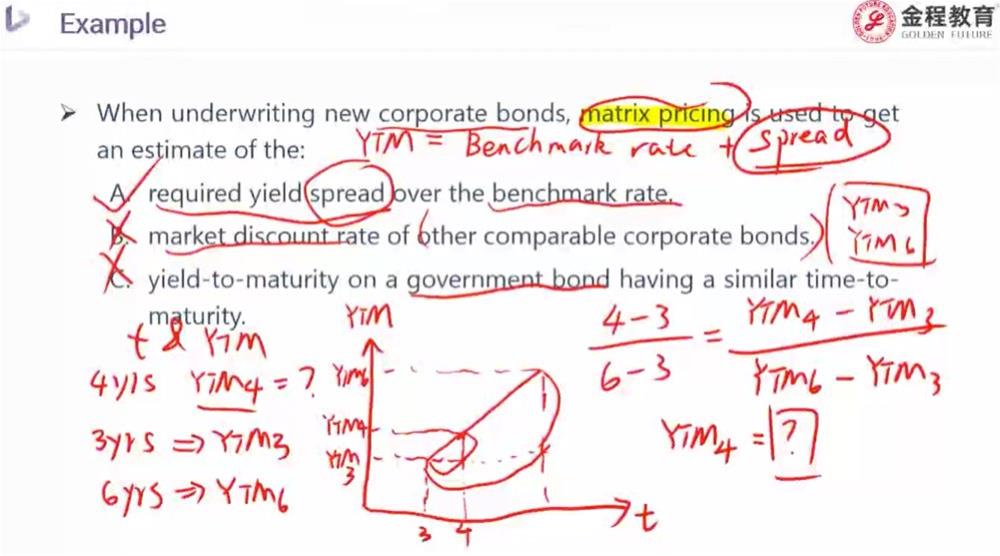 Example
金程教育
GOLDEN FUTURE
When underwriting new corporate bonds, matrix pricing is used to get
an estimate of the:
YTM = Benchmark rate + spread
A. required yield spread over the benchmark rate.
B. market discount rate of other comparable corporate bonds.
YTM3
YTM6
C. yield-to-maturity on a government bond having a similar time-to-
maturity.
t & YTM
4yrs YTM4 = ?
3yrs ⇒ YTM3
6yrs ⇒ YTM6
YTM
YTM6
YTM4
YTM3
3 4
t
4-3 / 6-3 = YTM4 - YTM3 / YTM6 - YTM3
YTM4 = ?